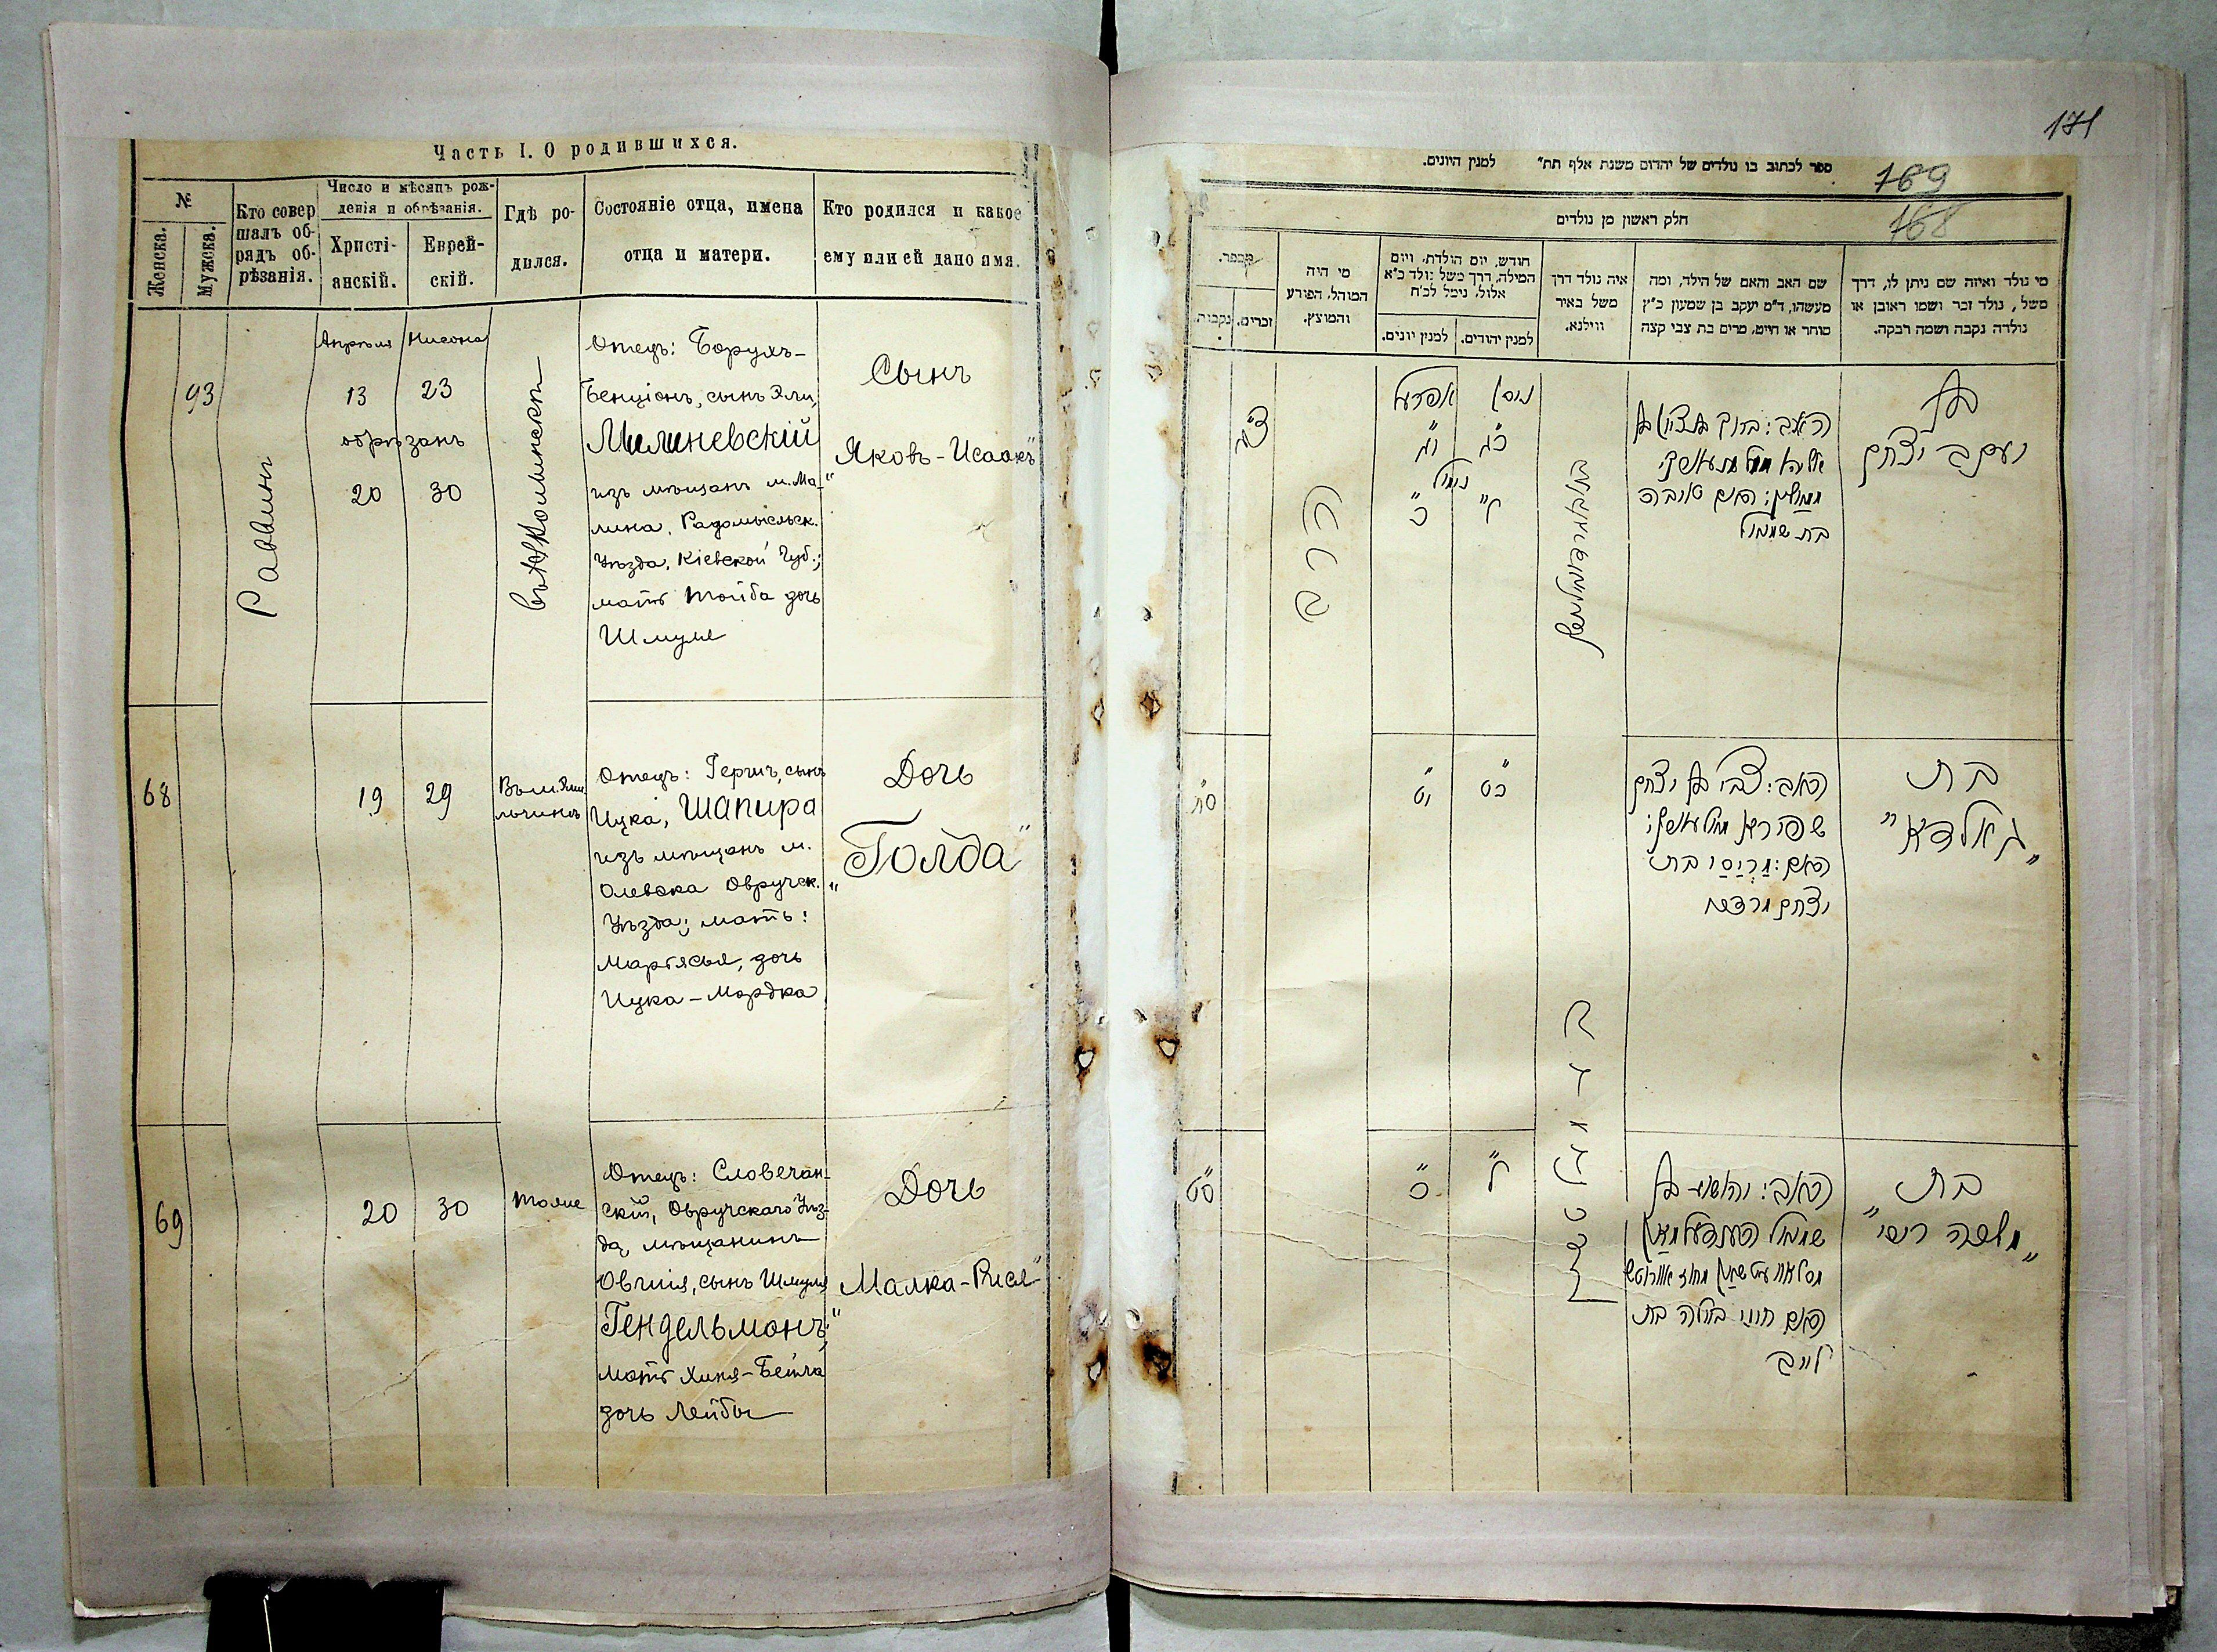 Часть I. О родившихся.
№
Женска.
Мужска.
Кто совер
шалъ об-
рядъ об-
рѣзанія.
Число и мѣсяцъ рож-
денія и обрѣзанія.
Христі-
анскій.
Еврей-
скій.
Гдѣ ро-
дился.
Состояніе отца, имена
отца и матери.
Кто родился и какое
ему или ей дано имя.
93
Раввинъ
Апрѣля
Нисона
13
23
обрѣзанъ
20
30
Отецъ: Борухъ-
Бенціонъ, сынъ Эли,
Милиневскій
изъ мѣщанъ м. Ма-
лина, Радомысльск.
Уѣзда, Кіевской Губ.;
мать Тойба дочь
Шмуля
Сынъ
„Яковъ-Исаакъ"
68
19
29
Отецъ: Гершъ, сынъ
Ицка, Шапира
изъ мѣщанъ м.
Олевска Овручск.
Уѣзда; мать:
Марьясья, дочь
Ицка-Мордка
Дочь
„Голда"
69
20
30
тоже
Отецъ: Словечан-
скій, Овручскаго Уѣз-
да, мѣщанинъ
Овшія, сынъ Шмуля
Гендельманъ;
мать Хиня-Бейла
дочь Лейбы
Дочь
„Малка-Рися"
171
ספר לכתוב בו נולדים של יהדום משנת אלף תת״ למנין היונים.
169
168
חלק ראשון מן נולדים
מי נולד ואיזה שם ניתן לו, דרך
משל, נולד זכר ושמו ראובן או
נולדה נקבה ושמה רבקה.
שם האב והאם של הילד, ומה
מעשהו, ד״מ יעקב בן שמעון כ״ץ
סוחר או חייט, מרים בת צבי קצה
איה נולד דרך
משל באיר
ווילנא.
חודש, יום הולדת, ויום
המילה, דרך משל נולד כ״א
אלול, נימל לכ״ח
למנין יהודים.
למנין יונים.
מי היה
המוהל, הפורע
והמוצץ.
מספר.
זכרים.
נקבות.
בן
יעקב יצחק
האב: ברוך בן ציון בן
בת שמואל
ניסן
אפריל
כג
יג
נימול
ל
כ
הרב
צ״ג
בת
„גאלדא"
האב: צבי בן יצחק
יצחק מרדכי
כט
יט
ס״ח
בת
„מלכה ריסי"
האב: יהושע בן
האם חיניביילה בת
לייב
ל
כ
ס״ט